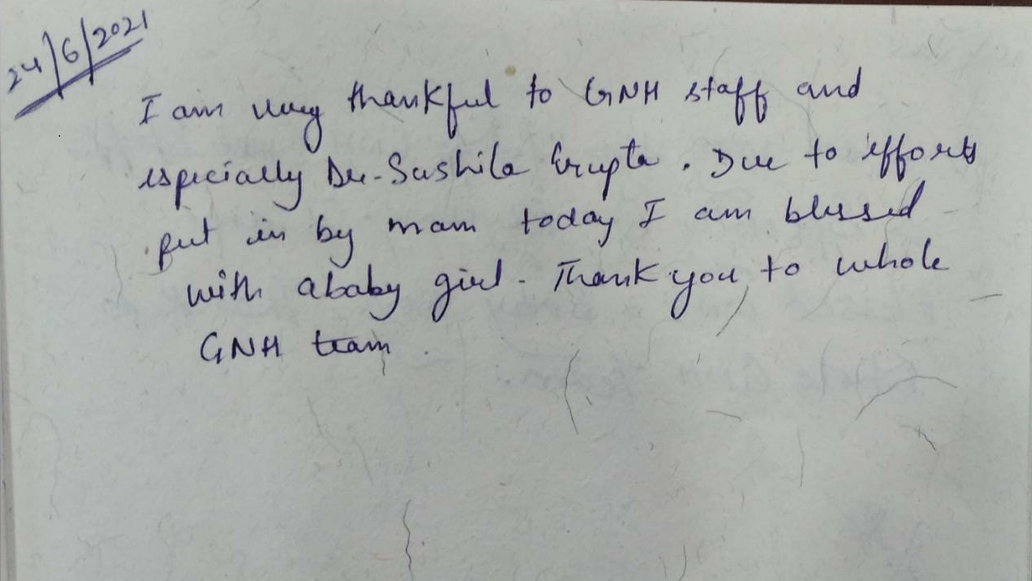 24/6/2021
I am very thankful to GNH staff and
especially Dr. Sushila Gupta. Due to efforts
put in by mam today I am blessed
with a baby girl. Thank you to whole
GNH team